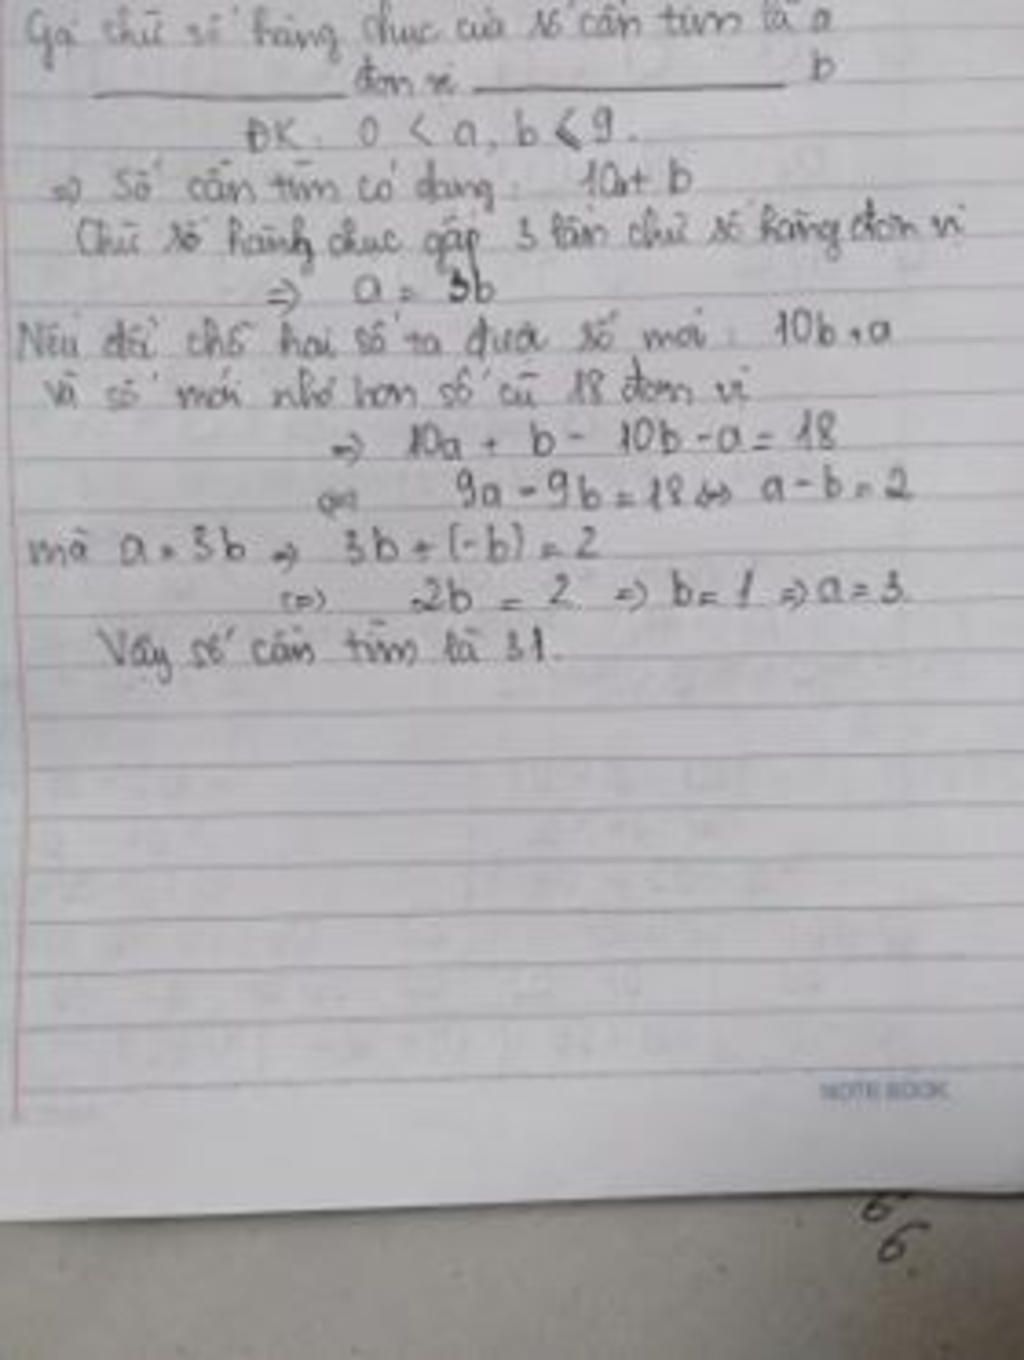 Gọi chữ số hàng chục của số cần tìm là a
đơn vị b
ĐK: 0 < a, b ≤ 9.
=> Số cần tìm có dạng: 10a + b
Chữ số hàng chục gấp 3 lần chữ số hàng đơn vị
=> a = 3b
Nếu đổi chỗ hai số ta được số mới: 10b + a
Và số mới nhỏ hơn số cũ 18 đơn vị
=> 10a + b - 10b - a = 18
<=> 9a - 9b = 18 <=> a - b = 2
mà a = 3b => 3b + (-b) = 2
<=> 2b = 2 => b = 1 => a = 3.
Vậy số cần tìm là 31.
NOTE BOOK
6
6